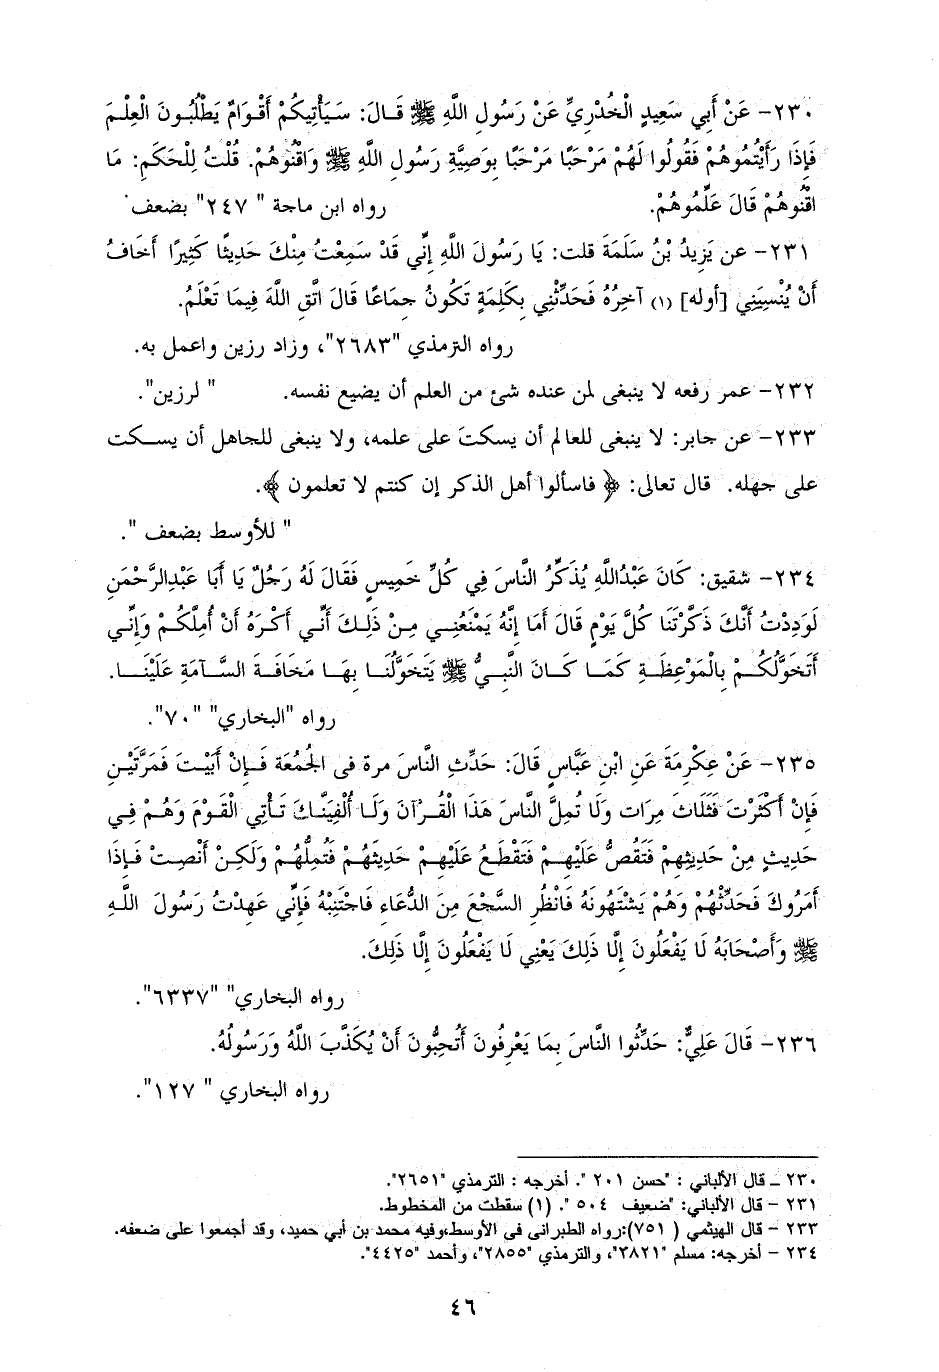 ٢٣٠- عَنْ أَبِي سَعِيدٍ الْخُدْرِيِّ عَنْ رَسُولِ اللَّهِ ﷺ قَالَ: سَيَأْتِيكُمْ أَقْوَامٌ يَطْلُبُونَ الْعِلْمَ
فَإِذَا رَأَيْتُمُوهُمْ فَقُولُوا لَهُمْ مَرْحَبًا مَرْحَبًا بِوَصِيَّةِ رَسُولِ اللَّهِ ﷺ وَاقْنُوهُمْ. قُلْتُ لِلْحَكَمِ: مَا
اقْنُوهُمْ قَالَ عَلِّمُوهُمْ. رواه ابن ماجة " ٢٤٧" بضعف
٢٣١- عن يَزِيدُ بْنُ سَلَمَةَ قلت: يَا رَسُولَ اللَّهِ إِنِّي قَدْ سَمِعْتُ مِنْكَ حَدِيثًا كَثِيرًا أَخَافُ
أَنْ يُنْسِيَنِي [أوله] (١) آخِرُهُ فَحَدِّثْنِي بِكَلِمَةٍ تَكُونُ جِمَاعًا قَالَ اتَّقِ اللَّهَ فِيمَا تَعْلَمُ.
رواه الترمذي "٢٦٨٣"، وزاد رزين واعمل به.
٢٣٢- عمر رفعه لا ينبغى لمن عنده شئ من العلم أن يضيع نفسه. " لرزين".
٢٣٣- عن جابر: لا ينبغي للعالم أن يسكتَ على علمه، ولا ينبغي للجاهل أن يسكت
على جهله. قال تعالى: ﴿ فاسألوا أهل الذكر إن كنتم لا تعلمون ﴾.
" للأوسط بضعف ".
٢٣٤- شقيق: كَانَ عَبْدُاللَّهِ يُذَكِّرُ النَّاسَ فِي كُلِّ خَمِيسٍ فَقَالَ لَهُ رَجُلٌ يَا أَبَا عَبْدِالرَّحْمَنِ
لَوَدِدْتُ أَنَّكَ ذَكَّرْتَنَا كُلَّ يَوْمٍ قَالَ أَمَا إِنَّهُ يَمْنَعُنِي مِنْ ذَلِكَ أَنِّي أَكْرَهُ أَنْ أُمِلَّكُمْ وَإِنِّي
أَتَخَوَّلُكُمْ بِالْمَوْعِظَةِ كَمَا كَانَ النَّبِيُّ ﷺ يَتَخَوَّلُنَا بِهَا مَخَافَةَ السَّآمَةِ عَلَيْنَا.
رواه "البخاري" "٧٠".
٢٣٥- عَنْ عِكْرِمَةَ عَنِ ابْنِ عَبَّاسٍ قَالَ: حَدِّثِ النَّاسَ مرة فى الْجُمُعَة فَإِنْ أَبَيْتَ فَمَرَّتَيْنِ
فَإِنْ أَكْثَرْتَ فَثَلَاثَ مِرَات وَلَا تُمِلَّ النَّاسَ هَذَا الْقُرْآنَ وَلَا أُلْفِيَنَّكَ تَأْتِي الْقَوْمَ وَهُمْ فِي
حَدِيثٍ مِنْ حَدِيثِهِمْ فَتَقُصُّ عَلَيْهِمْ فَتَقْطَعُ عَلَيْهِمْ حَدِيثَهُمْ فَتُمِلُّهُمْ وَلَكِنْ أَنْصِتْ فَإِذَا
أَمَرُوكَ فَحَدِّثْهُمْ وَهُمْ يَشْتَهُونَهُ فَانْظُرِ السَّجْعَ مِنَ الدُّعَاءِ فَاجْتَنِبْهُ فَإِنِّي عَهِدْتُ رَسُولَ اللَّهِ
ﷺ وَأَصْحَابَهُ لَا يَفْعَلُونَ إِلَّا ذَلِكَ يَعْنِي لَا يَفْعَلُونَ إِلَّا ذَلِكَ.
رواه البخاري" "٦٣٣٧".
٢٣٦- قَالَ عَلِيٌّ: حَدِّثُوا النَّاسَ بِمَا يَعْرِفُونَ أَتُحِبُّونَ أَنْ يُكَذَّبَ اللَّهُ وَرَسُولُهُ.
رواه البخاري " ١٢٧".
٢٣٠ ـ قال الألباني : "حسن ٢٠١ ". أخرجه : الترمذي "٢٦٥١".
٢٣١ - قال الألباني: "ضعيف ٥٠٤ ". (١) سقطت من المخطوط.
٢٣٣ - قال الهيثمي ( ٧٥١):رواه الطبرانى فى الأوسط،وفيه محمد بن أبي حميد، وقد أجمعوا على ضعفه.
٢٣٤ - أخرجه: مسلم "٢٨٢١"، والترمذي "٢٨٥٥"، وأحمد "٤٤٢٥".
٤٦